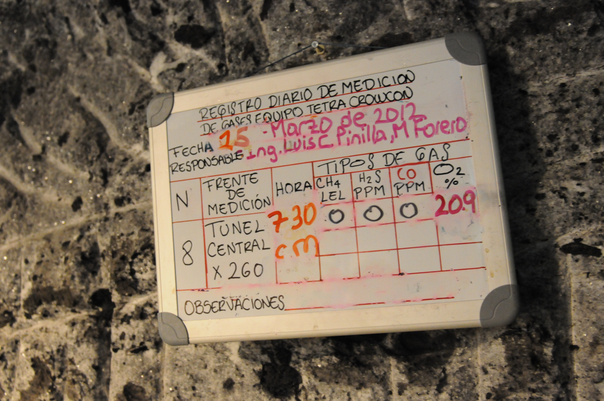 REGISTRO DIARIO DE MEDICION
DE GASES EQUIPO TETRA CROWCON
FECHA 25 Marzo de 2012
RESPONSABLE Ing. Luis C. Pinilla, M Forero
TIPOS DE GAS
N FRENTE DE MEDICIÓN HORA CH4 LEL H2S PPM CO PPM O2 %
8 TUNEL CENTRAL X 260 730 cm 0 0 0 209
OBSERVACIONES